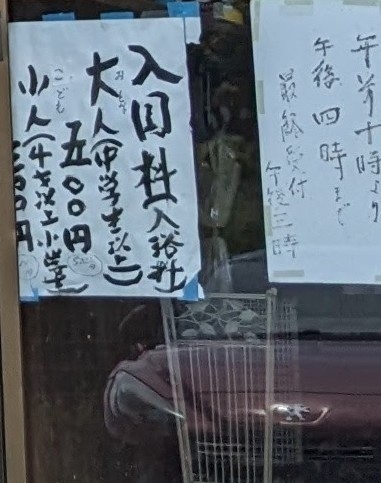 午前十時より
午後四時まで
最終受付
午後三時
入園料(入浴料)
おとな
大人(中学生以上)
五〇〇円
500円
こども
小人(4才以上小学生)